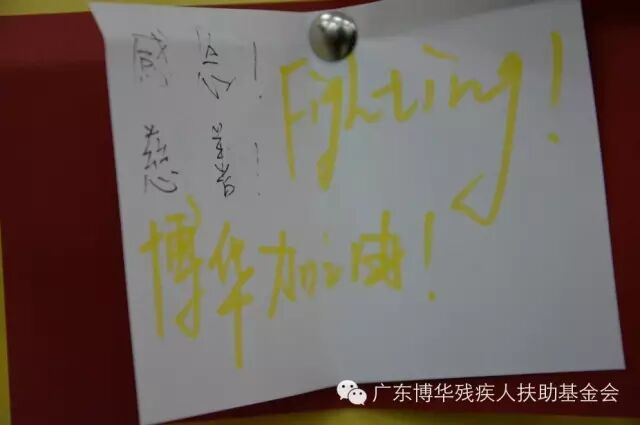 感恩！
慈善！
Fighting！
博华加油！
广东博华残疾人扶助基金会